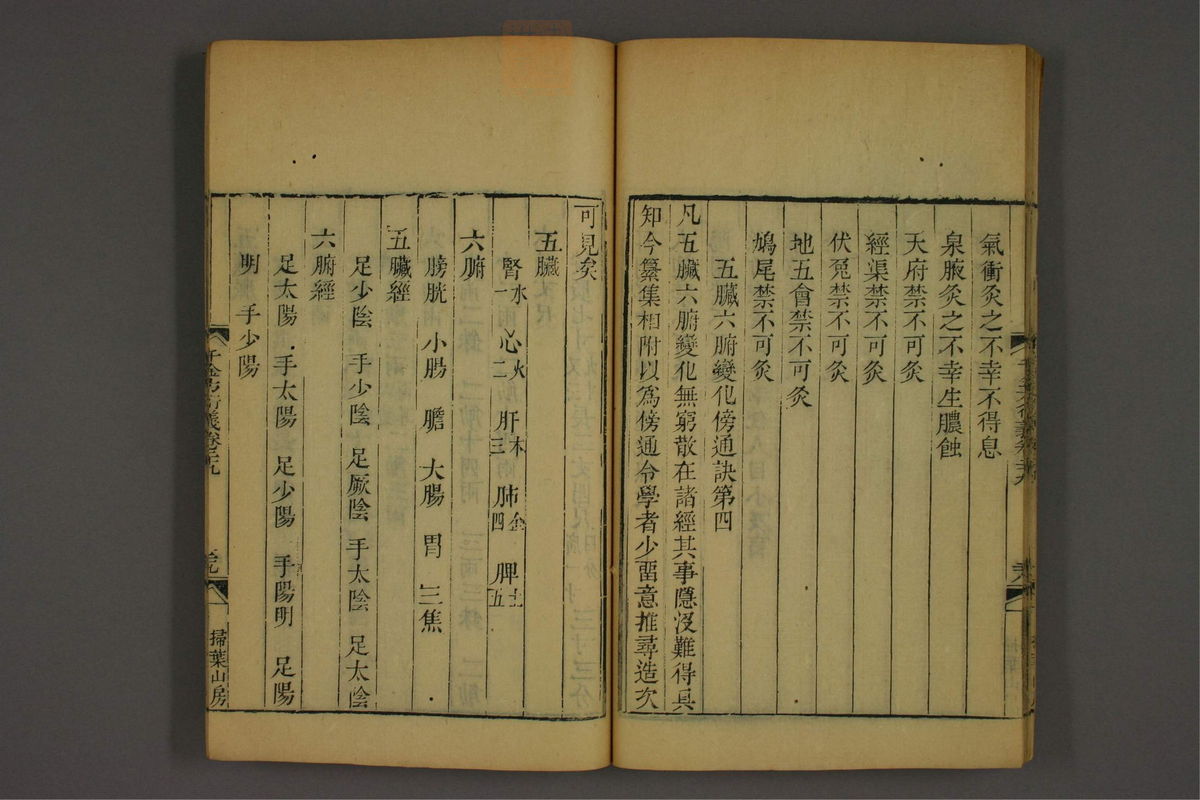 氣衝灸之不幸不得息
泉腋灸之不幸生膿蝕
天府禁不可灸
經渠禁不可灸
伏兔禁不可灸
地五會禁不可灸
鳩尾禁不可灸
五臟六腑變化傍通訣第四
凡五臟六腑變化無窮散在諸經其事隱沒難得具
知今纂集相附以爲傍通令學者少留意推尋造次
可見矣
五臟
腎水一 心火二 肝木三 肺金四 脾土五
六腑
膀胱 小腸 膽 大腸 胃 三焦
五臟經
足少陰 手少陰 足厥陰 手太陰 足太陰
六腑經
足太陽 手太陽 足少陽 手陽明 足陽
明 手少陽
千金方衍義卷二十九
掃葉山房